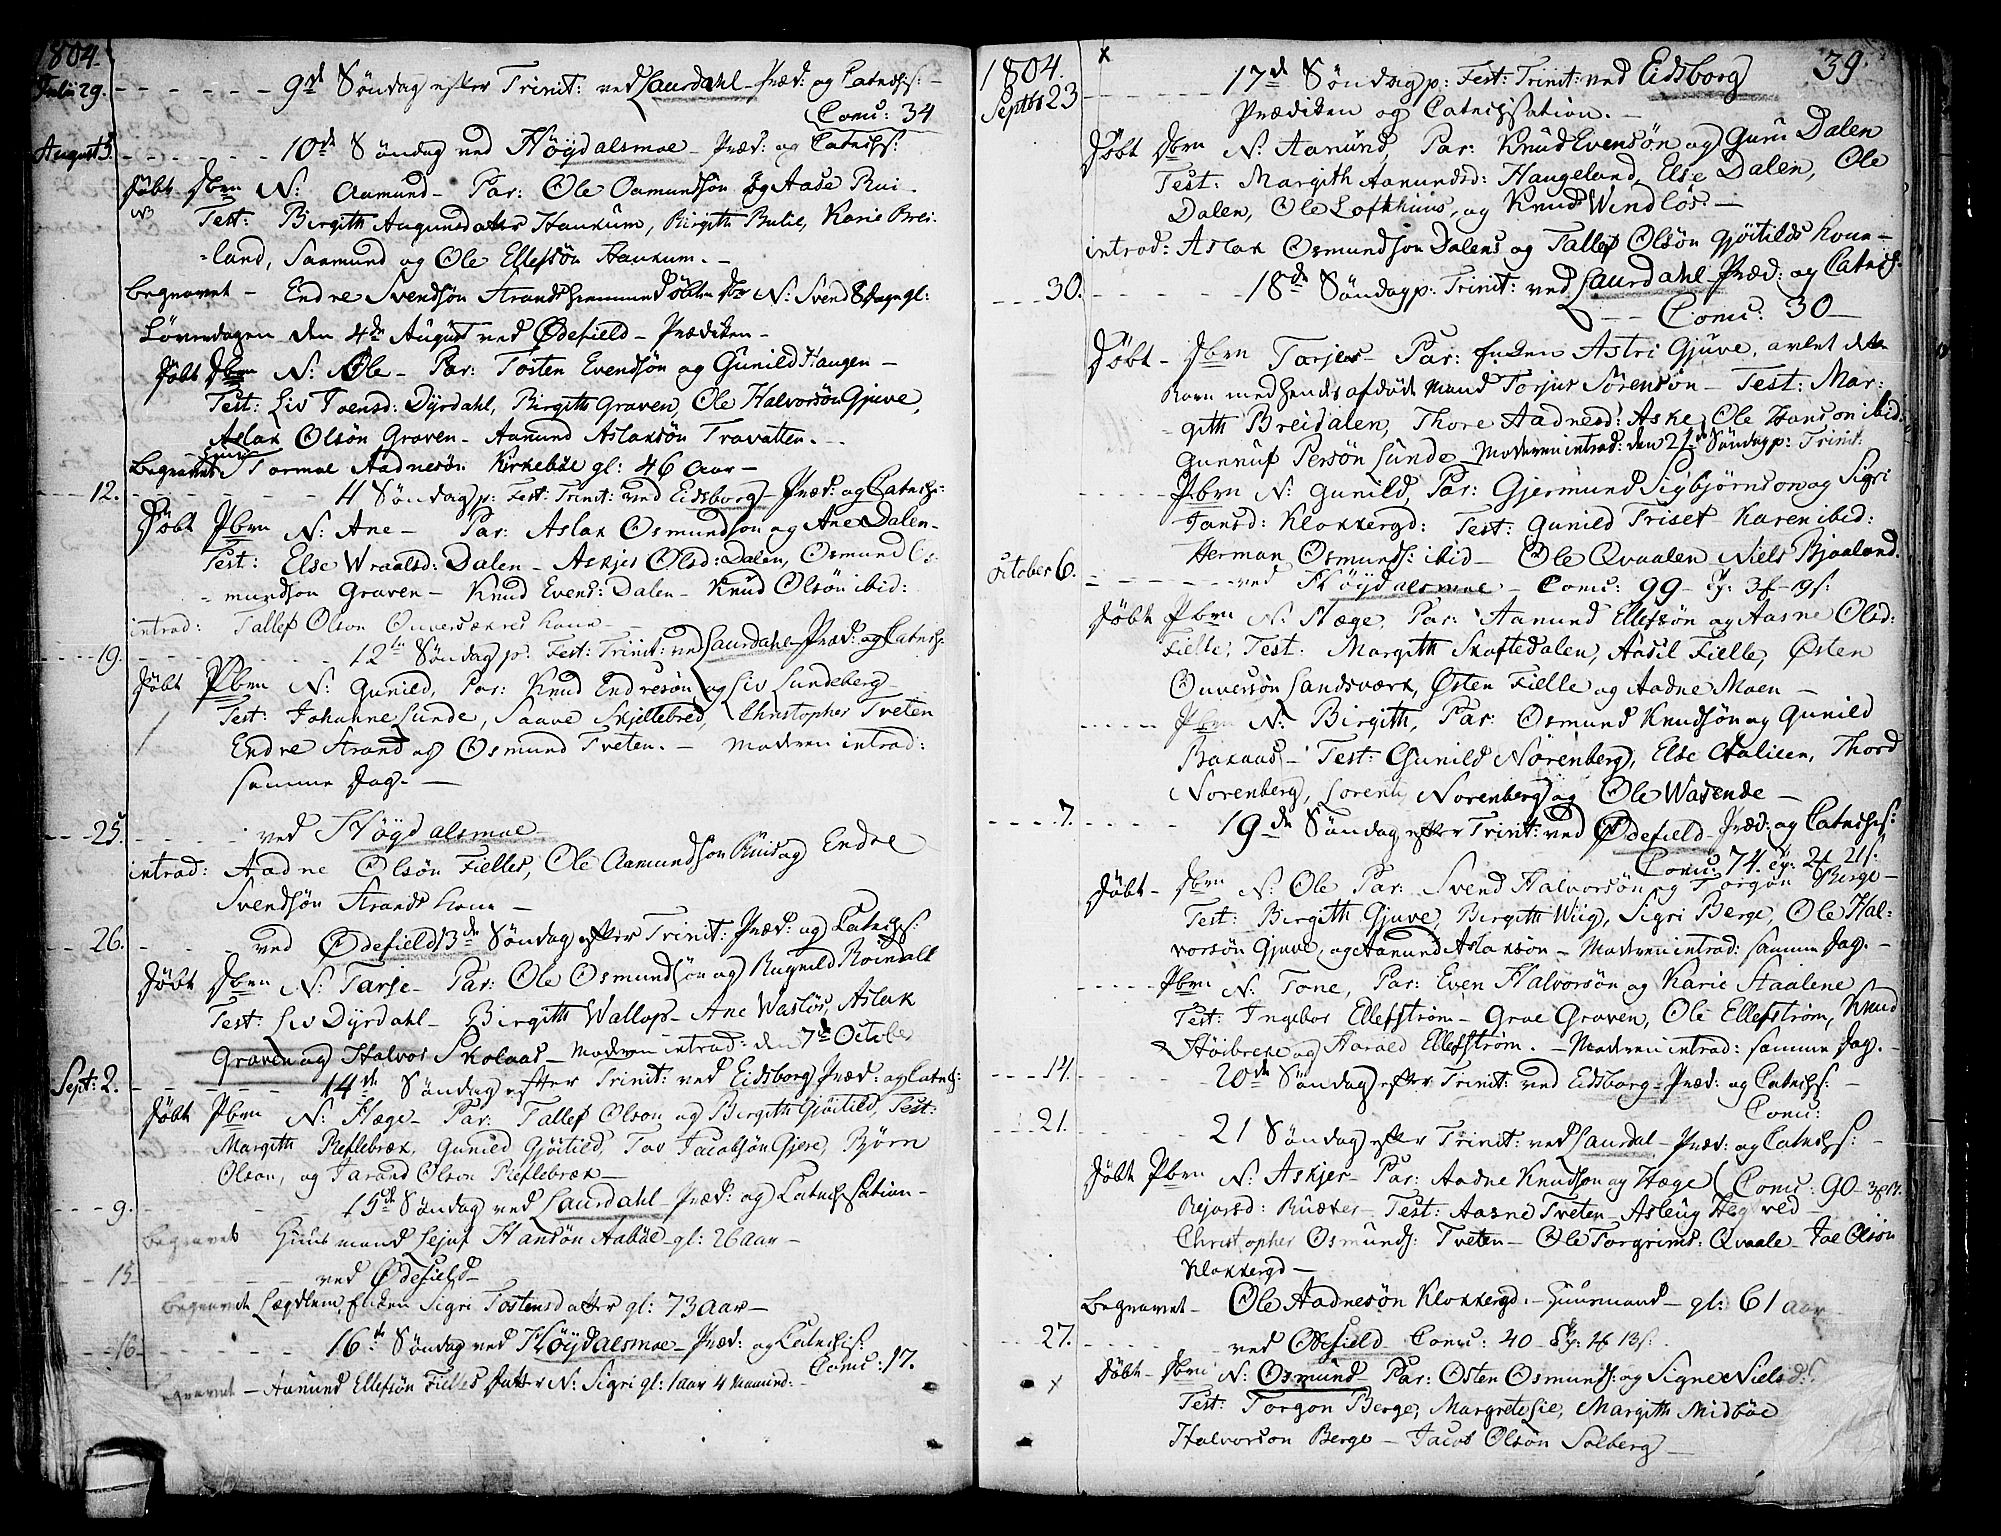 1804.
Julii 29. - 9de Søndag efter Trinit: ved Laurdahl - Præd: og Catechs: -
Comu: 34
August 5. - 10de Søndag ved Höydalsmoe - Præd: og Catechs:
Døbt Dbrn N: Aamund - Par: Ole Aamundsön og Aase Rui -
NB Test: Birgith Augunsdatter Haukum, Birgith Bulie, Karie Brei-
-land, Saamund og Ole Ellefsön Haukum. -
Begravet - Endre Svendsön Strands hiemmedöbte Dbr N: Svend 8 Dage gl:
Löverdagen den 4de August ved Ødefield - Prædiken -
Døbt Dbrn N: Ole - Par: Tosten Evensön og Gunild Haugen -
Test: Liv Toensd: Dyrdahl, Birgith Graven, Ole Halvorsön Gjuve,
Aslak Olsön Graven - Aanund Aslaksön Travatten. -
Begravet Tormoe Aadnesön Kirkebøe gl: 46 Aar -
12. - 11 Søndag p: Fest: Trinit: ved Eidsborg - Præd: og Catechs:
Døbt Pbrn N: Ane - Par: Aslak Osmundson og Ane Dalen -
Test: Else Wraalsd: Dalen - Askjer Olsd: Dalen, Osmund Os-
-mundson Graven - Knud Evens: Dalen - Knud Olsön ibid:
introd: Tallef Olson Ouversækres kone -
19. - 12te Søndag p: Fest: Trinit: ved Laurdahl - Præd: og Catechs:
Døbt Pbrn N: Gunild, Par: Knud Endresön og Liv Lundeberg
Test: Johanne Lunde, Saave Skjellebred, Christopher Tveten
Endre Strand og Osmund Tveten. - Moderen introd:
samme Dag. -
25. - ved Höydalsmoe -
introd: Aadne Olsön Fielles, Ole Aamundson Ruis og Endre
Svendsön Strands kone -
26. - ved Ødefield 13de Søndag efter Trinit: Præd: og Catechs:
Døbt Dbrn N: Tarje - Par: Ole Osmundsön og Rugnild Roindalt
Test: Liv Dyrdahl - Birgith Wallop - Ane Waslös, Aslak
Graven og Halvor Skolaas - Moderen introd: den 7de October
Sept: 2. - 14de Søndag efter Trinit: ved Eidsborg Præd: og Catechs:
Døbt Pbrn N: Hæge - Par: Tallef Olson og Birgith Gjöitild, Test:
Margith Reflebræk, Gunild Gjöitild, Tov Jacobsön Gjere, Björn
Olson, og Tarand Olson Reflebræk -
9. - 15de Søndag ved Laurdahl - Præd: og Catechsation -
Begravet Huusmand Lejuf Hansön Aabøe - gl: 26 aar -
15. - ved Ødefield -
Begravet Lægdlem, Enken Sigri Tostensdatter gl: 73 Aar -
16. - 16de Søndag ved Höydalsmoe - Præd: og Catechis:
Comu: 17.
Begravet - Aanund Ellefsön Fielles Datter N: Sigri gl: 1 aar 4 Maaned: -
1804. x 39.
Septbr 23 - 17de Søndag p: Fest: Trinit: ved Eidsborg
Prædiken og Catechisation. -
Døbt Dbrn N: Aanund, Par: Knud Evensön og Guru Dalen
Test: Margith Aanundsd: Haugeland, Else Dalen, Ole
Dalen, Ole Lofthuus, og Knud Windlös -
introd: Aslak Osmundson Dalens og Tallef Olsön Gjöitilds kone -
30. - 18de Søndag p: Trinit: ved Laurdahl Præd: og Catech:
Comu: 30 -
Døbt - Dbrn Tarjer - Par: Enken Astri Gjuve, avlet dette
Barn med hendes afdöde Mand Torjus Sörensön - Test: Mar-
gith Breidalen, Thore Aadnesd: Aske, Ole Hanson ibid:
Gunnuf Persön Lunde - Moderen introd: den 21de Søndag p: Trinit:
- Pbrn N: Gunild, Par: Gjermund Sigbjörnson og Sigri
Jansd: Klokkergd: Test: Gunild Triset - Karen ibid:
Herman Osmunds: ibid - Ole Qvaalen Niels Bjaaland.
October 6. - ved Höydalsmoe - Comu: 99 - 3f - 19s:
Døbt Pbrn N: Hæge, Par: Aanund Ellefsön og Aasne Olsd:
Fielle, Test: Margith Skaftedalen, Aasil Fielle, Østen
Ouversön Landsværk, Østen Fielle og Aadne Moen -
- Pbrn N: Birgith, Par: Osmund Knudsön og Gunild
Bakaas - Test: Gunild Norenberg, Else Aalieen, Thord
Norenberg, Lorent Norenberg og Ole Wasende -
7. - 19de Søndag efter Trinit: ved Ødefield - Præd: og Catechis:
Comu: 74. 2f 21s:
Døbt - Dbrn N: Ole Par: Svend Halvorsön og Torgon Berge -
Test: Birgith Gjuve, Birgith Wiig, Sigri Berge, Ole Hal-
vorsön Gjuve, og Aanund Aslaksön - Moderen introd: samme Dag. -
- Pbrn N: Tone, Par: Even Halvorsön og Karie Staalene
Test: Ingebor Ellefström - Groe Graven, Ole Ellefström, Knud
Höibreke og Harald Ellefström. - Moderen introd: samme Dag. -
14. - 20de Søndag efter Trinit: ved Eidsborg - Præd: og Catechs: -
Comu:
21. - 21 Søndag efter Trinit: ved Laurdal - Præd: og Catechs: -
Døbt Pbrn N: Askjer - Par: Aadne Knudson og Hæge (Comu: 90 -
Rejarsd: Rueker - Test: Aasne Tveten - Asleug Heg ved -
Christopher Osmunds: Tveten - Ole Torgrims: Qvaale - Joe Olsön
Klokkergd -
Begravet - Ole Aadnesön Klokkergd. - Huusmand - gl: 61 aar
27. - ved Ødefield Comu: 40 - 1f 13s:
x Døbt - Dbrn N: Osmund - Par: Østen Osmunds: og Signe Nielsd:
Test: Torgon Berge, Margrete Lie, Margith Midbøe
Halvorson Berge - Jacob Olsön Solberg -